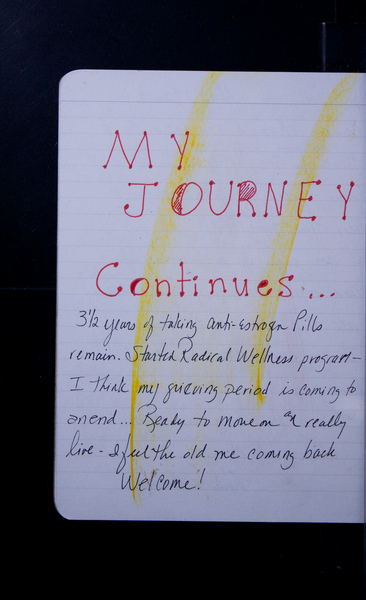 MY
JOURNEY
Continues...
3½ years of taking anti-estrogen Pills
remain. Started Radical Wellness program-
I think my grieving period is coming to
anend... Ready to move on an really
live - I feel the old me coming back
Welcome!